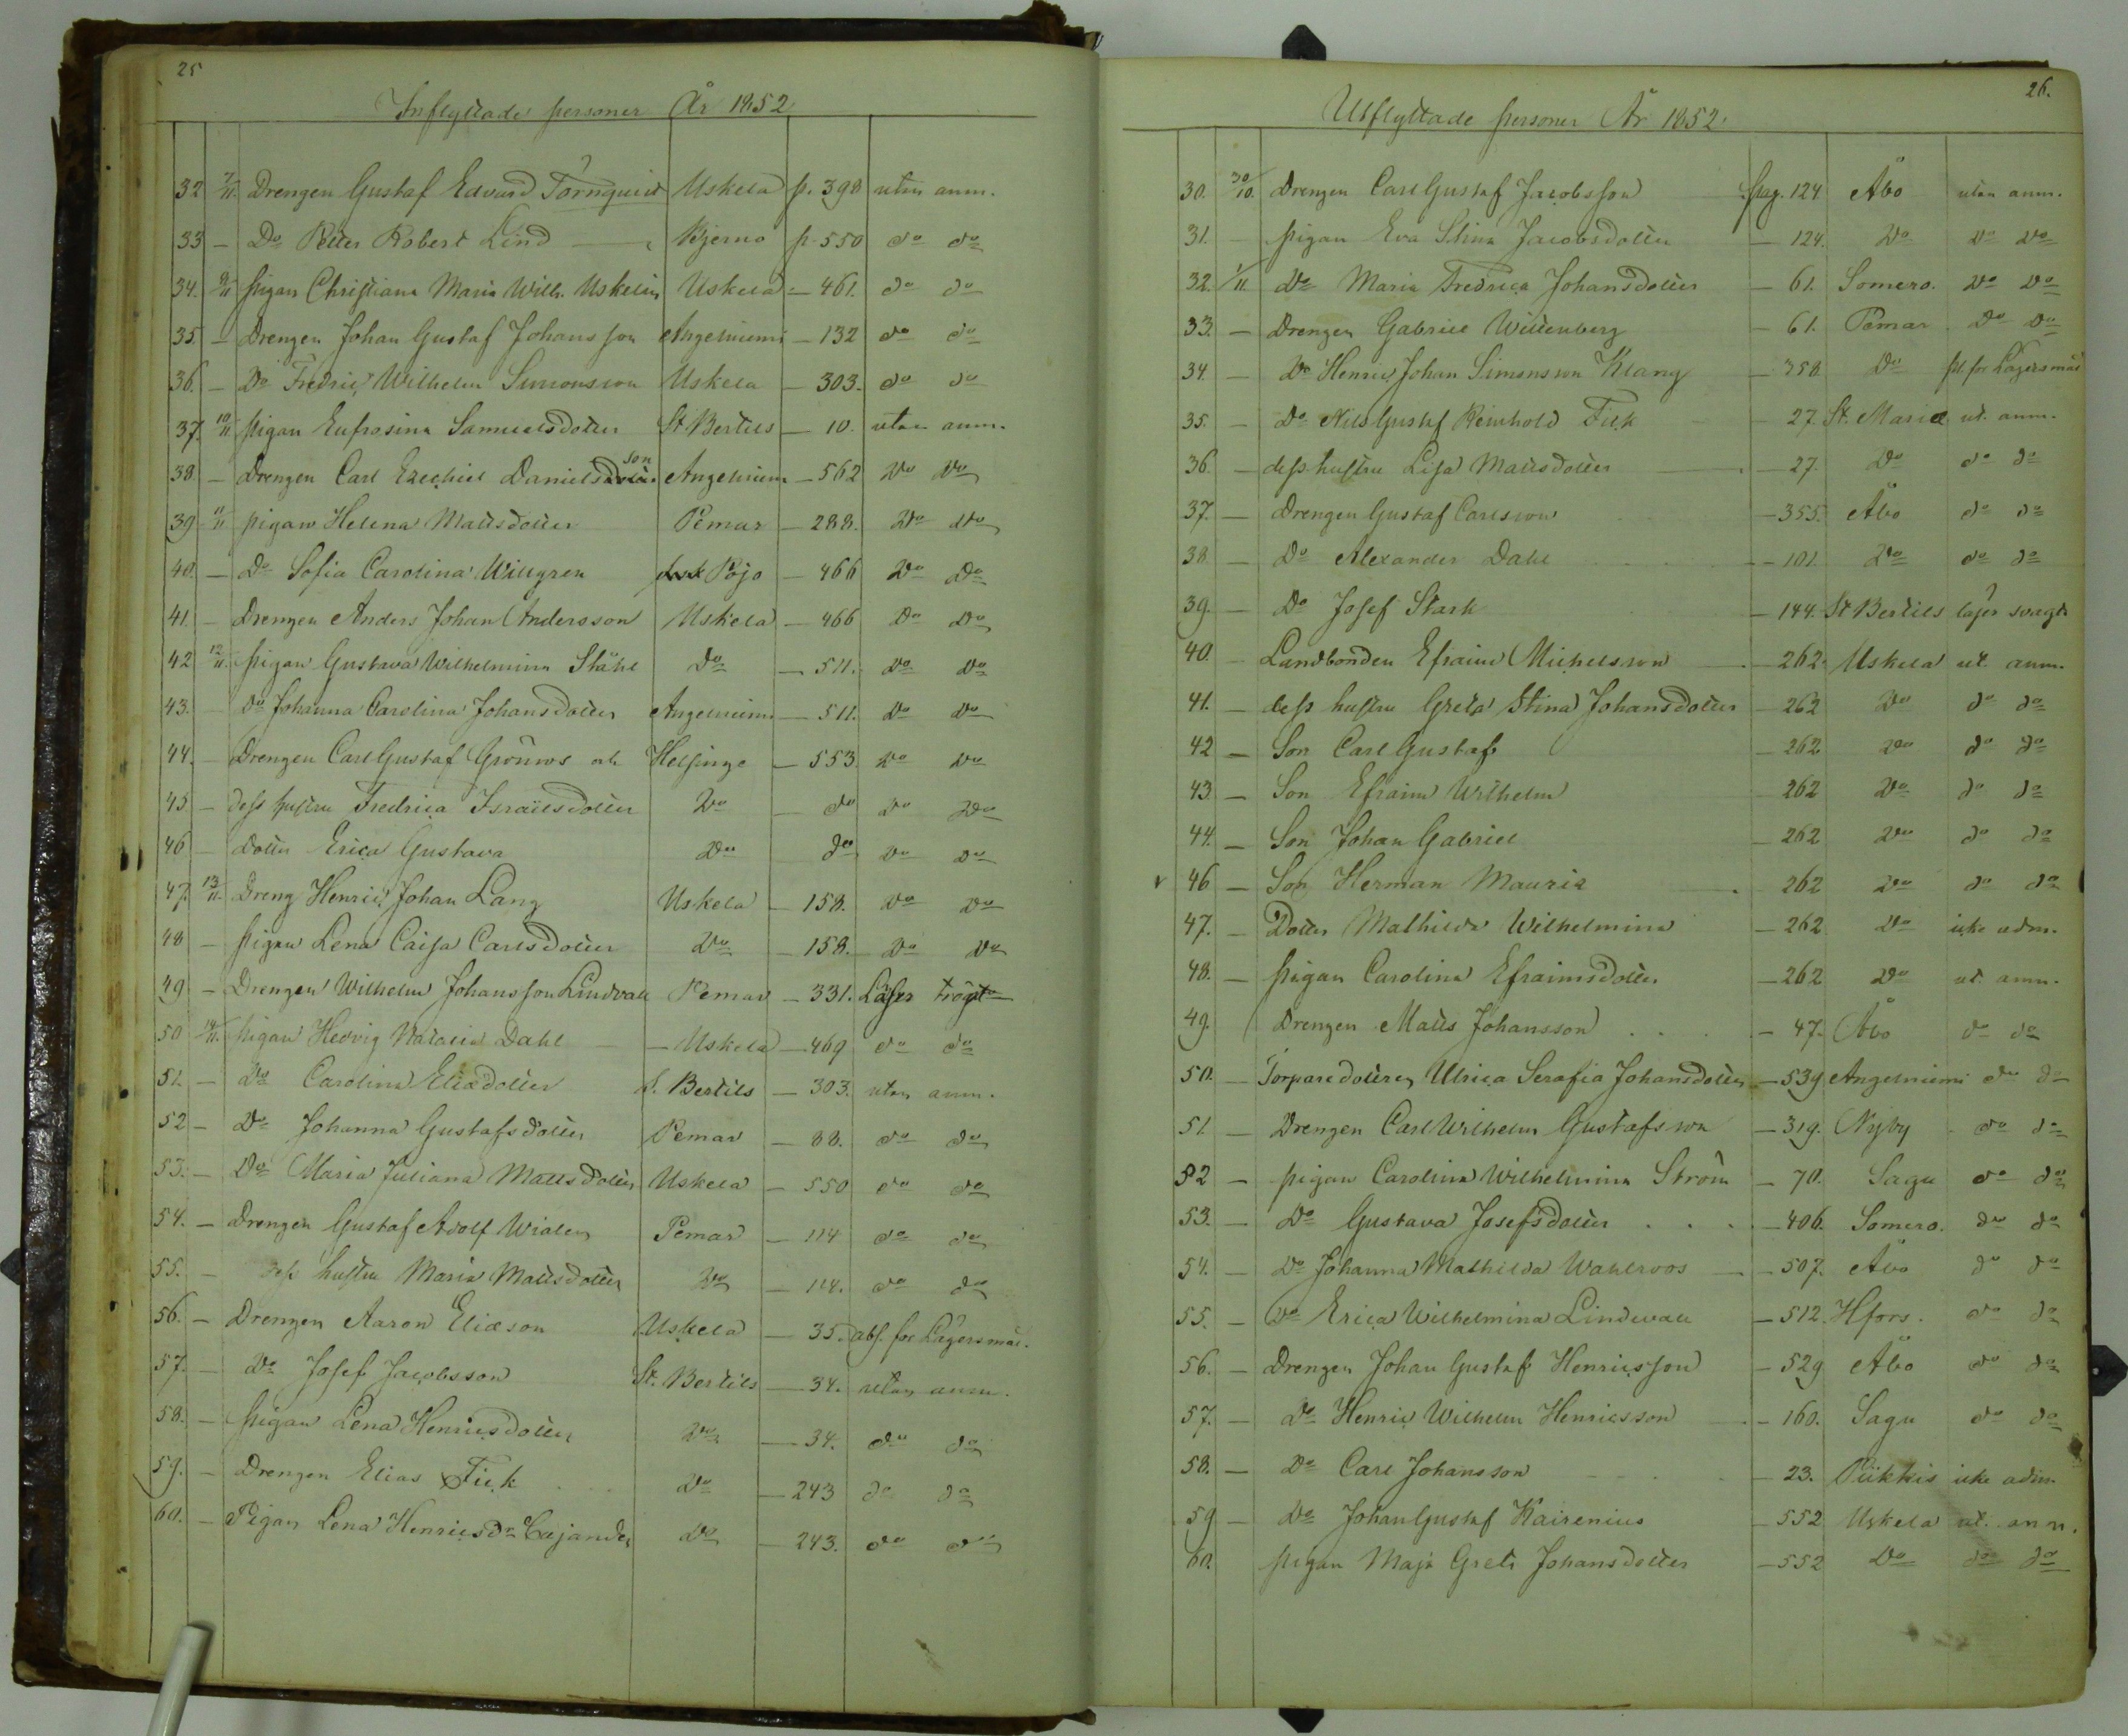 25
Inflyttade personer År 1852
32 7/11. Drengen Gustaf Edvard Törnquist Uskela p. 398 utan anm.
33 — Do Petter Robert Lind — Bjerno p. 550 do do
34. 9/11 pigan Christiana Maria Wilh. Uskelin Uskela — 461. do do
35. — Drengen Johan Gustaf Johansson Angelniemi — 132 do do
36. — Do Fredric Wilhelm Simonsson Uskela — 303. do do
37. 10/11 pigan Eufrosina Samuelsdotter St Bertils — 10. utan anm.
38. — Drengen Carl Ezechiel Danielsson Angelniem — 562 Do Do
39 11/11 pigan Helena Mattsdotter Pemar — 288. Do Do
40. — Do Sofia Carolina Willgren Pojo — 466 Do Do
41. — Drengen Anders Johan Andersson Uskela — 466 Do Do
42 12/11. pigan Gustava Wilhelmina Ståhl Do — 511. Do Do
43. — Do Johanna Carolina Johansdotter Angelniem — 511. Do Do
44. — Drengen Carl Gustaf Grönroos och Helsinge — 553. Do Do
45 — dess hustru Fredrica Israelsdotter Do — do Do Do
46 — dotter Erica Gustava Do do Do Do
47. 13/11. Dreng Henric Johan Lang Uskela — 158. Do Do
48 — pigan Lena Caisa Carlsdotter Do — 158. Do Do
49 — Drengen Wilhelm Johansson Lindvall Pemar — 331. Läser trögt
50 14/11. pigan Hedvig Natalia Dahl — Uskela — 469 do do
51. — Do Carolina Eliedotter S. Bertils — 303. utan anm.
52 — Do Johanna Gustafsdotter Pemar — 88. do do
53. — Do Maria Juliana Mattsdotter Uskela — 550 do do
54. — Drengen Gustaf Adolf Wialen Pemar — 114 do do
55. — dess hustru Maria Mattsdotter Do — 114. do do
56. — Drengen Aaron Eliæson Uskela — 35. abs. för Lägersmål.
57. — Do Josef Jacobsson St. Bertils — 34. utan anm.
58. — pigan Lena Henricsdotter Do — 34. do do
59. — Drengen Elias Fick Do — 243 do do
60. — Pigan Lena Henricsdr Cajander Do — 243. do do
26.
Utflyttade personer År 1852.
30. 30/10. Drengen Carl Gustaf Jacobsson pag. 124 Åbo utan anm.
31. — pigan Eva Stina Jacobsdotter — 124. Do Do Do
32. 1/11 Do Maria Fredrica Johansdotter — 61. Somero. Do Do
33. — Drengen Gabriel Wittenberg — 61. Pemar Do Do
34. — Do Henric Johan Simonsson Klang — 358 Do för Lägersmål
35. — Do Nils Gustaf Reinhold Fick — 27 St. Mariæ ut. anm.
36. — dess hustru Lisa Mattsdotter — 27. Do do do
37. — Drengen Gustaf Carlsson — 355. Åbo do do
38 — Do Alexander Dahl — 101. Do do do
39. — Do Josef Stark — 144. St Bertils läser svagt
40. — Landbonden Efraim Michelsson — 262. Uskela ut. anm.
41. — dess hustru Greta Stina Johansdotter — 262 Do do do
42 — Son Carl Gustaf — 262 Do do do
43. — Son Efraim Wilhelm 262 Do do do
44. — Son Johan Gabriel — 262 Do do do
46 — Son Herman Mauriz 262 Do do do
47. — Dotter Mathilda Wilhelmina — 262 Do icke adm.
48. — pigan Carolina Efraimsdotter — 262 Do ut. anm.
49. Drengen Matts Johansson — 47. Åbo do do
50. — Torparedotteren Ulrica Serafia Johansdotter — 539 Angelniemi do do
51. — Drengen Carl Wilhelm Gustafsson — 319. Nyby do do
52 — pigan Carolina Wilhelmina Ström — 70. Sagu do do
53. — Do Gustava Josefsdotter — 406. Somero. do do
54. — Do Johanna Mathilda Wahlroos — 507. Åbo do do
55. — Do Erica Wilhelmina Lindwall — 512. Hfors. do do
56. — Drengen Johan Gustaf Henricsson — 529 Åbo do do
57. — Do Henric Wilhelm Henricsson — 160. Sagu do do
58. — Do Carl Johansson — 23. Piikkis icke adm.
59 — Do Johan Gustaf Kairenius — 552 Uskela ut. anm.
60. pigan Maja Greta Johansdotter — 552 Do do do